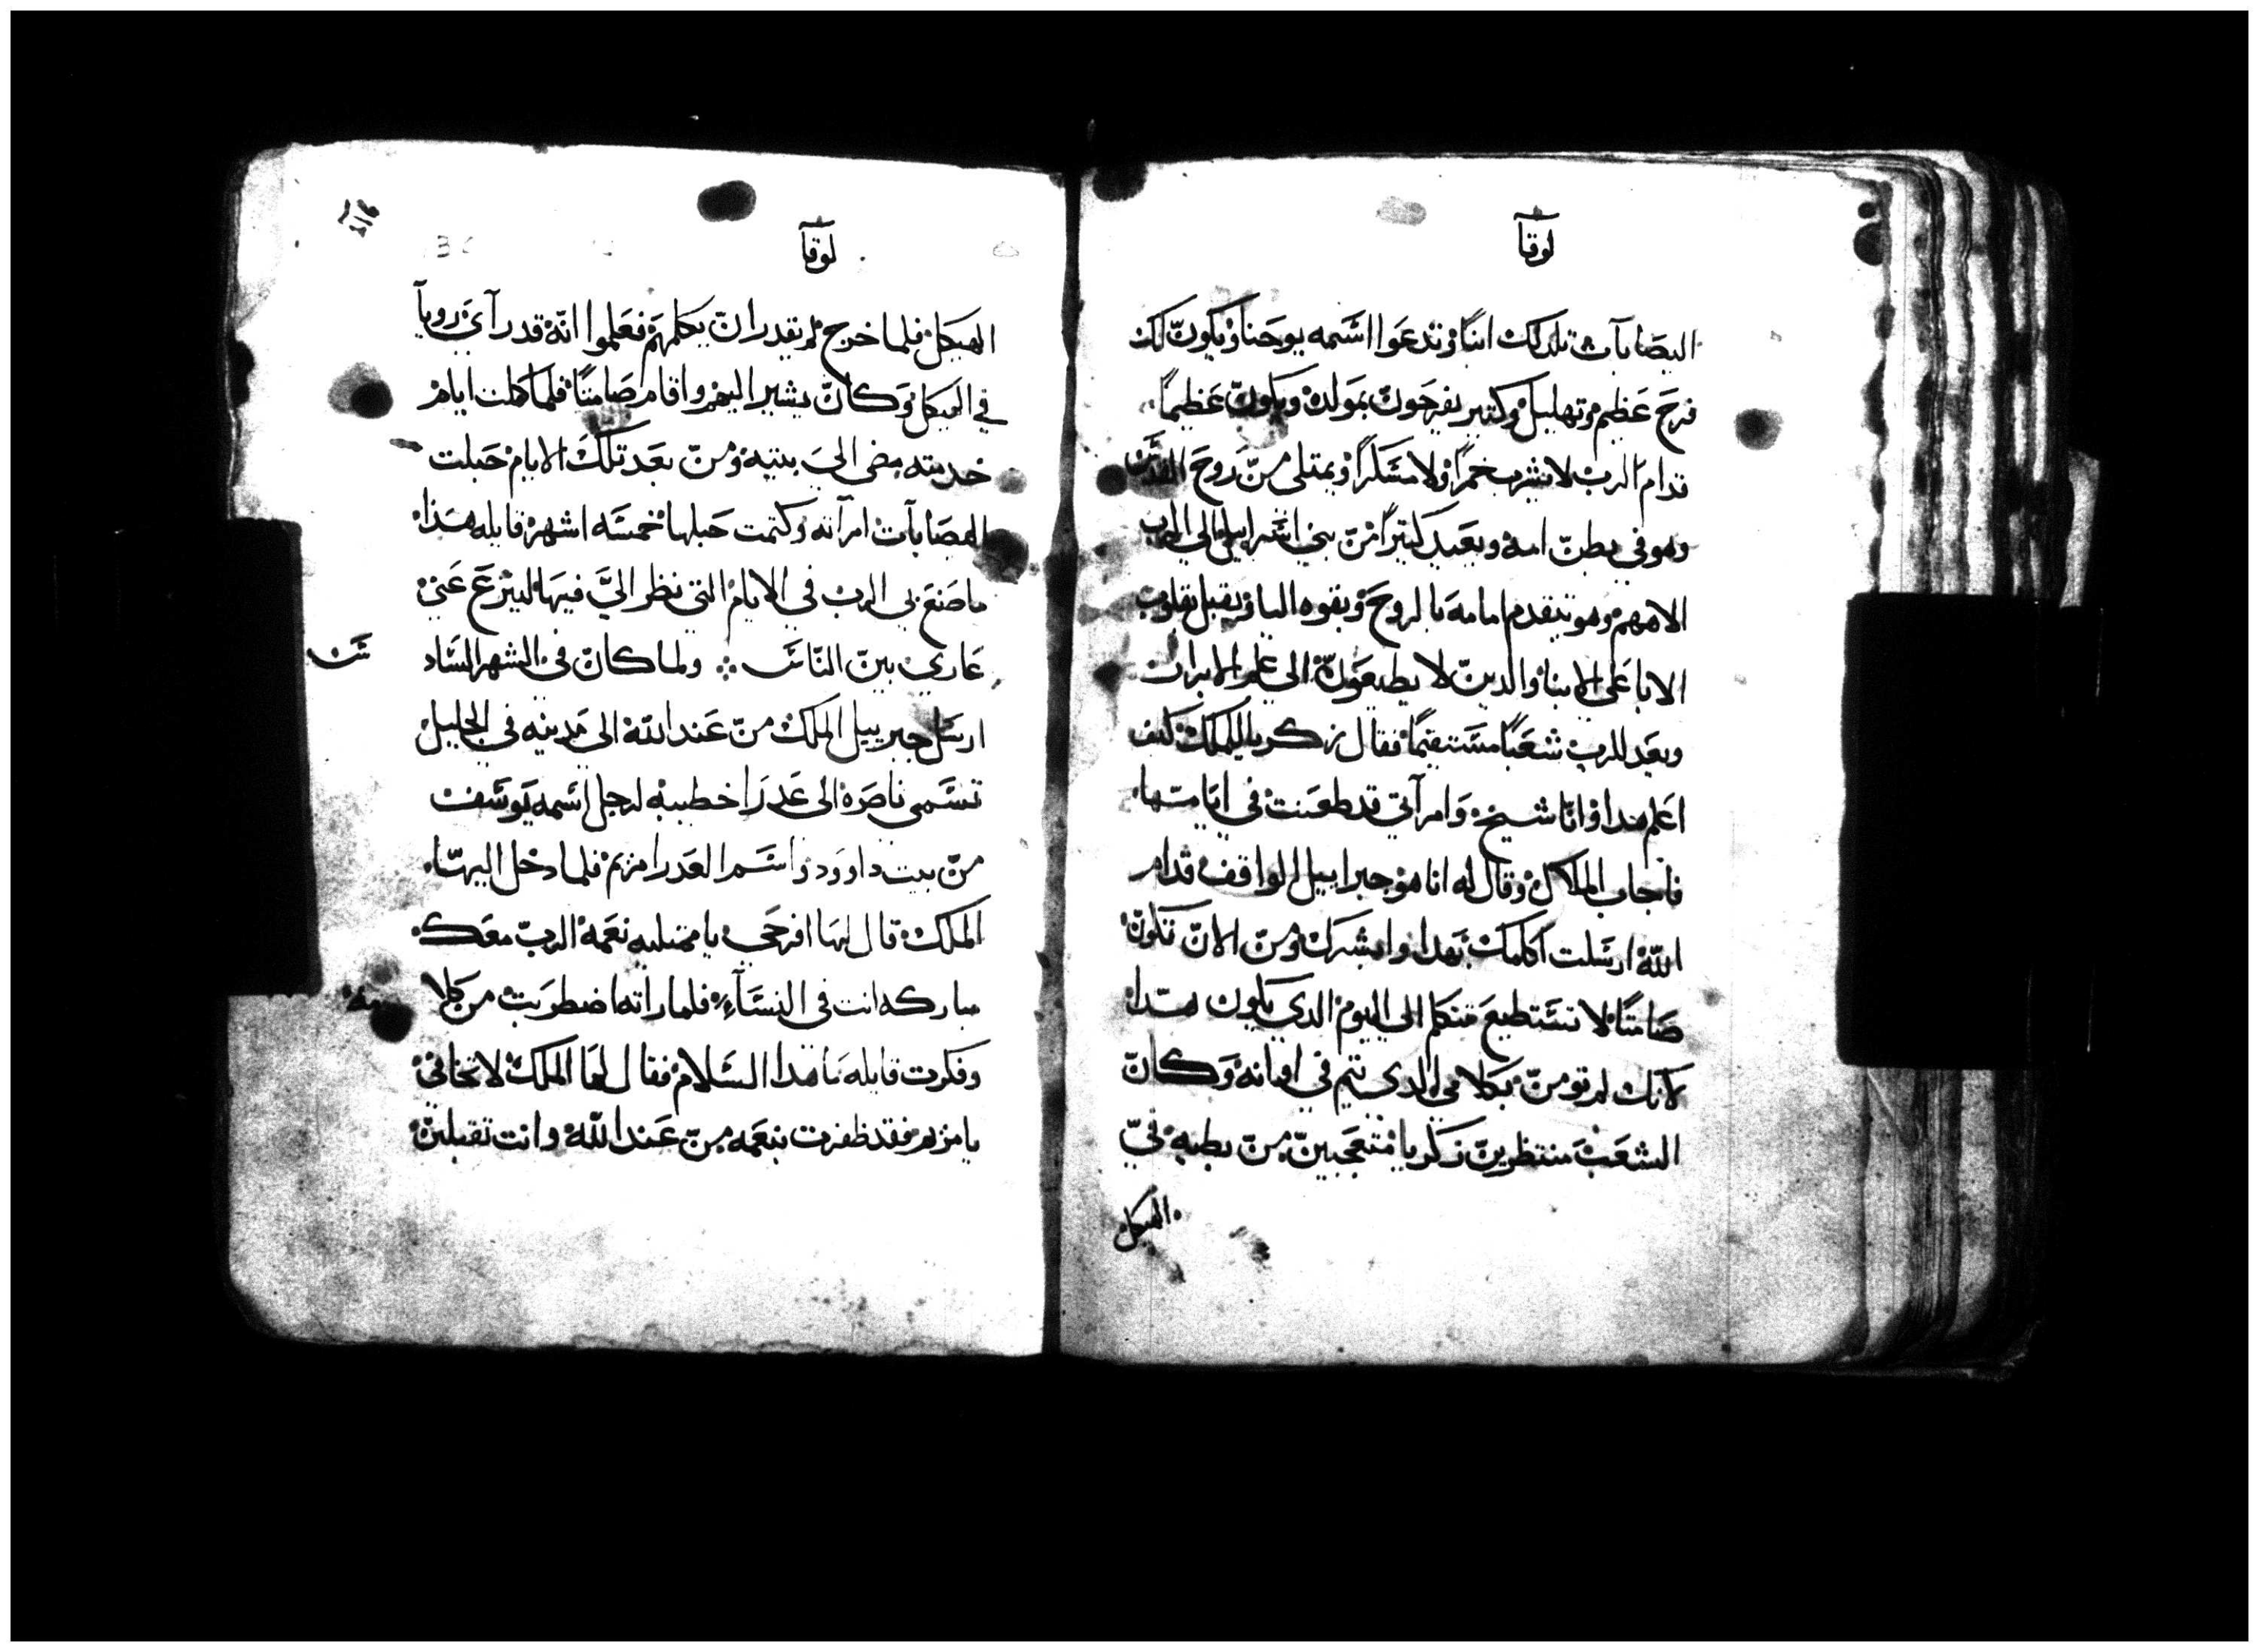 لوقا
اليصابات تلد لك ابنًا وتدعوا اسمه يوحنا ويكون لك
فرح عظيم وتهليل وكتير يفرحون بمولده ويكون عظيمًا
قدام الرب لا يشرب خمرًا ولا مسكرًا ويمتلى من روح القدس
وهو في بطن امه ويعيد كتيرًا من بني اسراييل الي الرب
الاههم وهو يتقدم امامه بالروح وبقوه اليا ويقبل بقلوب
الابا على الابنا والدين لا يطيعون الى علم الابرار
ويعد للرب شعبًا مستقيمًا فقال زكريا للملك كيف
اعلم هدا وانا شيخ وامرآتي قد طعنت في ايامها
فاجاب الملاك وقال له انا هو جبراييل الواقف قدام
الله ارسلت اكلمك بهدا وابشرك ومن الان تكون
صامتًا لا تستطيع تتكلم الى اليوم الدي يكون هدا
لانك لم تومن بكلامي الدي يتم في اوانه وكان
الشعب منتظرين زكريا متعجبين من بطيه في
الهيكل
لوقا
الهيكل فلما خرج لم يقدر ان يكلمهم فعلموا انه قد رآي رويا
في الهيكل وكان يشير اليهم واقام صامتًا فلما كملت ايام
خدمته مضى الى بيته ومن بعد تلك الايام حبلت
اليصابات امرآته وكتمت حبلها خمسه اشهر قايله هدا
ما صنع بي الرب في الايام التي نظر اليّ فيها لينزع عني
عاري بين الناس ولما كان في الشهر الساد
ارسل جبرييل الملك من عند الله الى مدينه في الجليل
تسمى ناصره الى عدرا خطيبه لرجل اسمه يوسف
من بيت داوود واسم العدرا مريم فلما دخل اليها
الملك قال لها افرحي يا ممتليه نعمه الرب معك
مباركه انت في النسآء فلما راته اضطربت من كلا
مه
وفكرت قايله ما هدا السلام فقال لها الملك لا تخافي
يا مريم فقد ظفرت بنعمه من عند الله وانت تقبلين